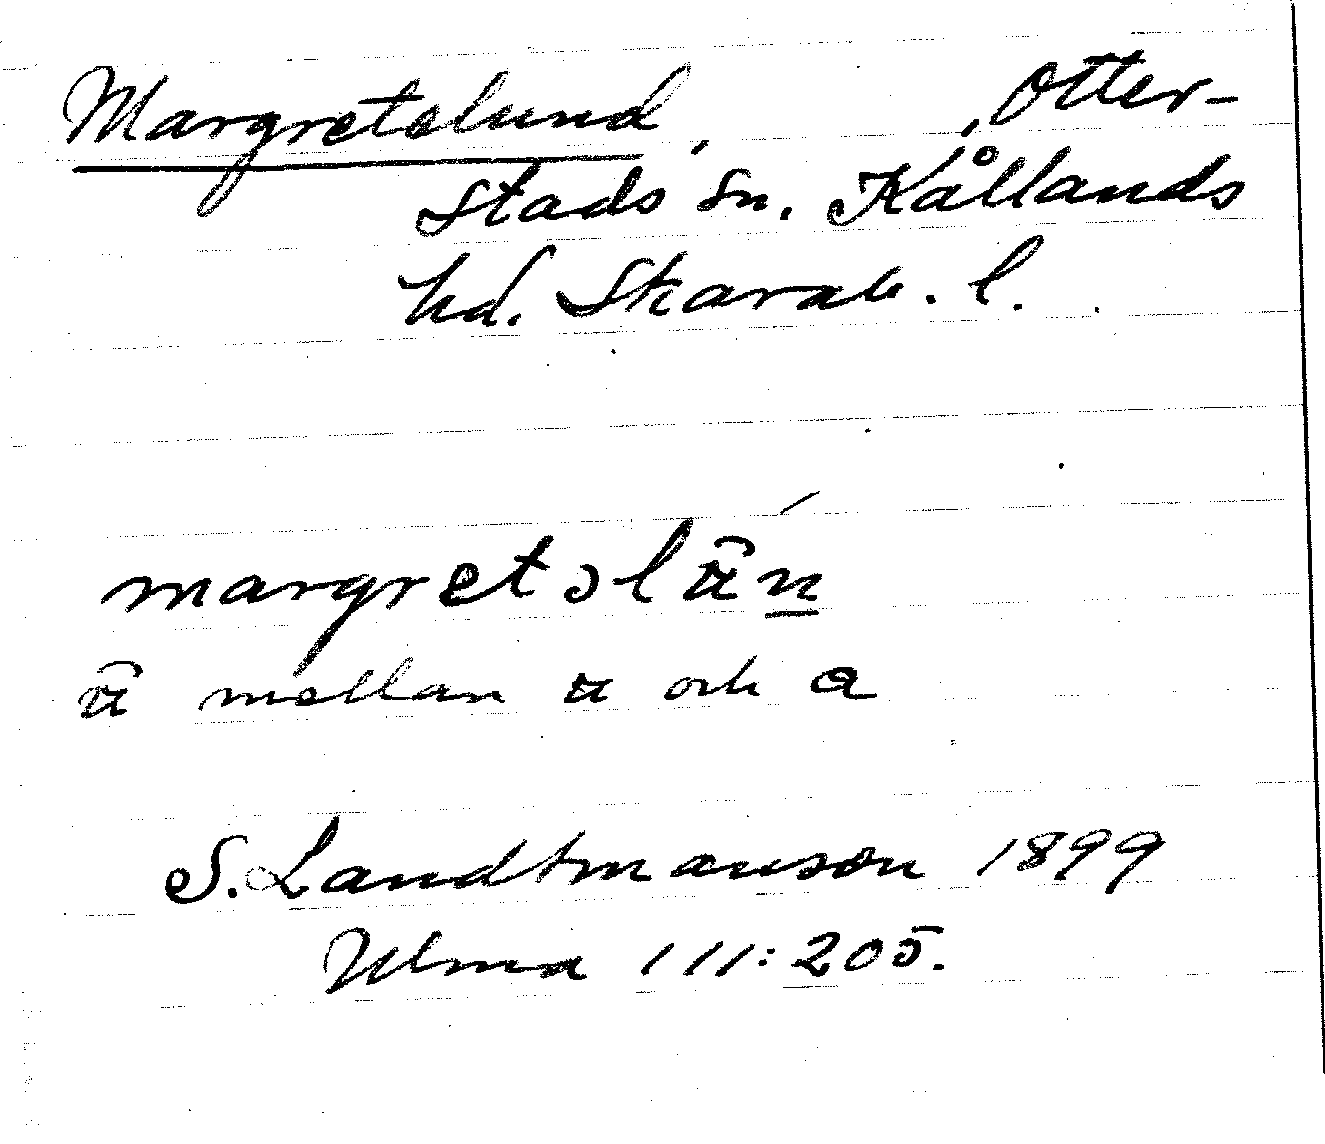 Margretelund, Otter-
stads sn. Kållands
hd. Skarab. l.
margretəlän
mellan och a
S. Landtmanson 1899
Ulma 111:205.